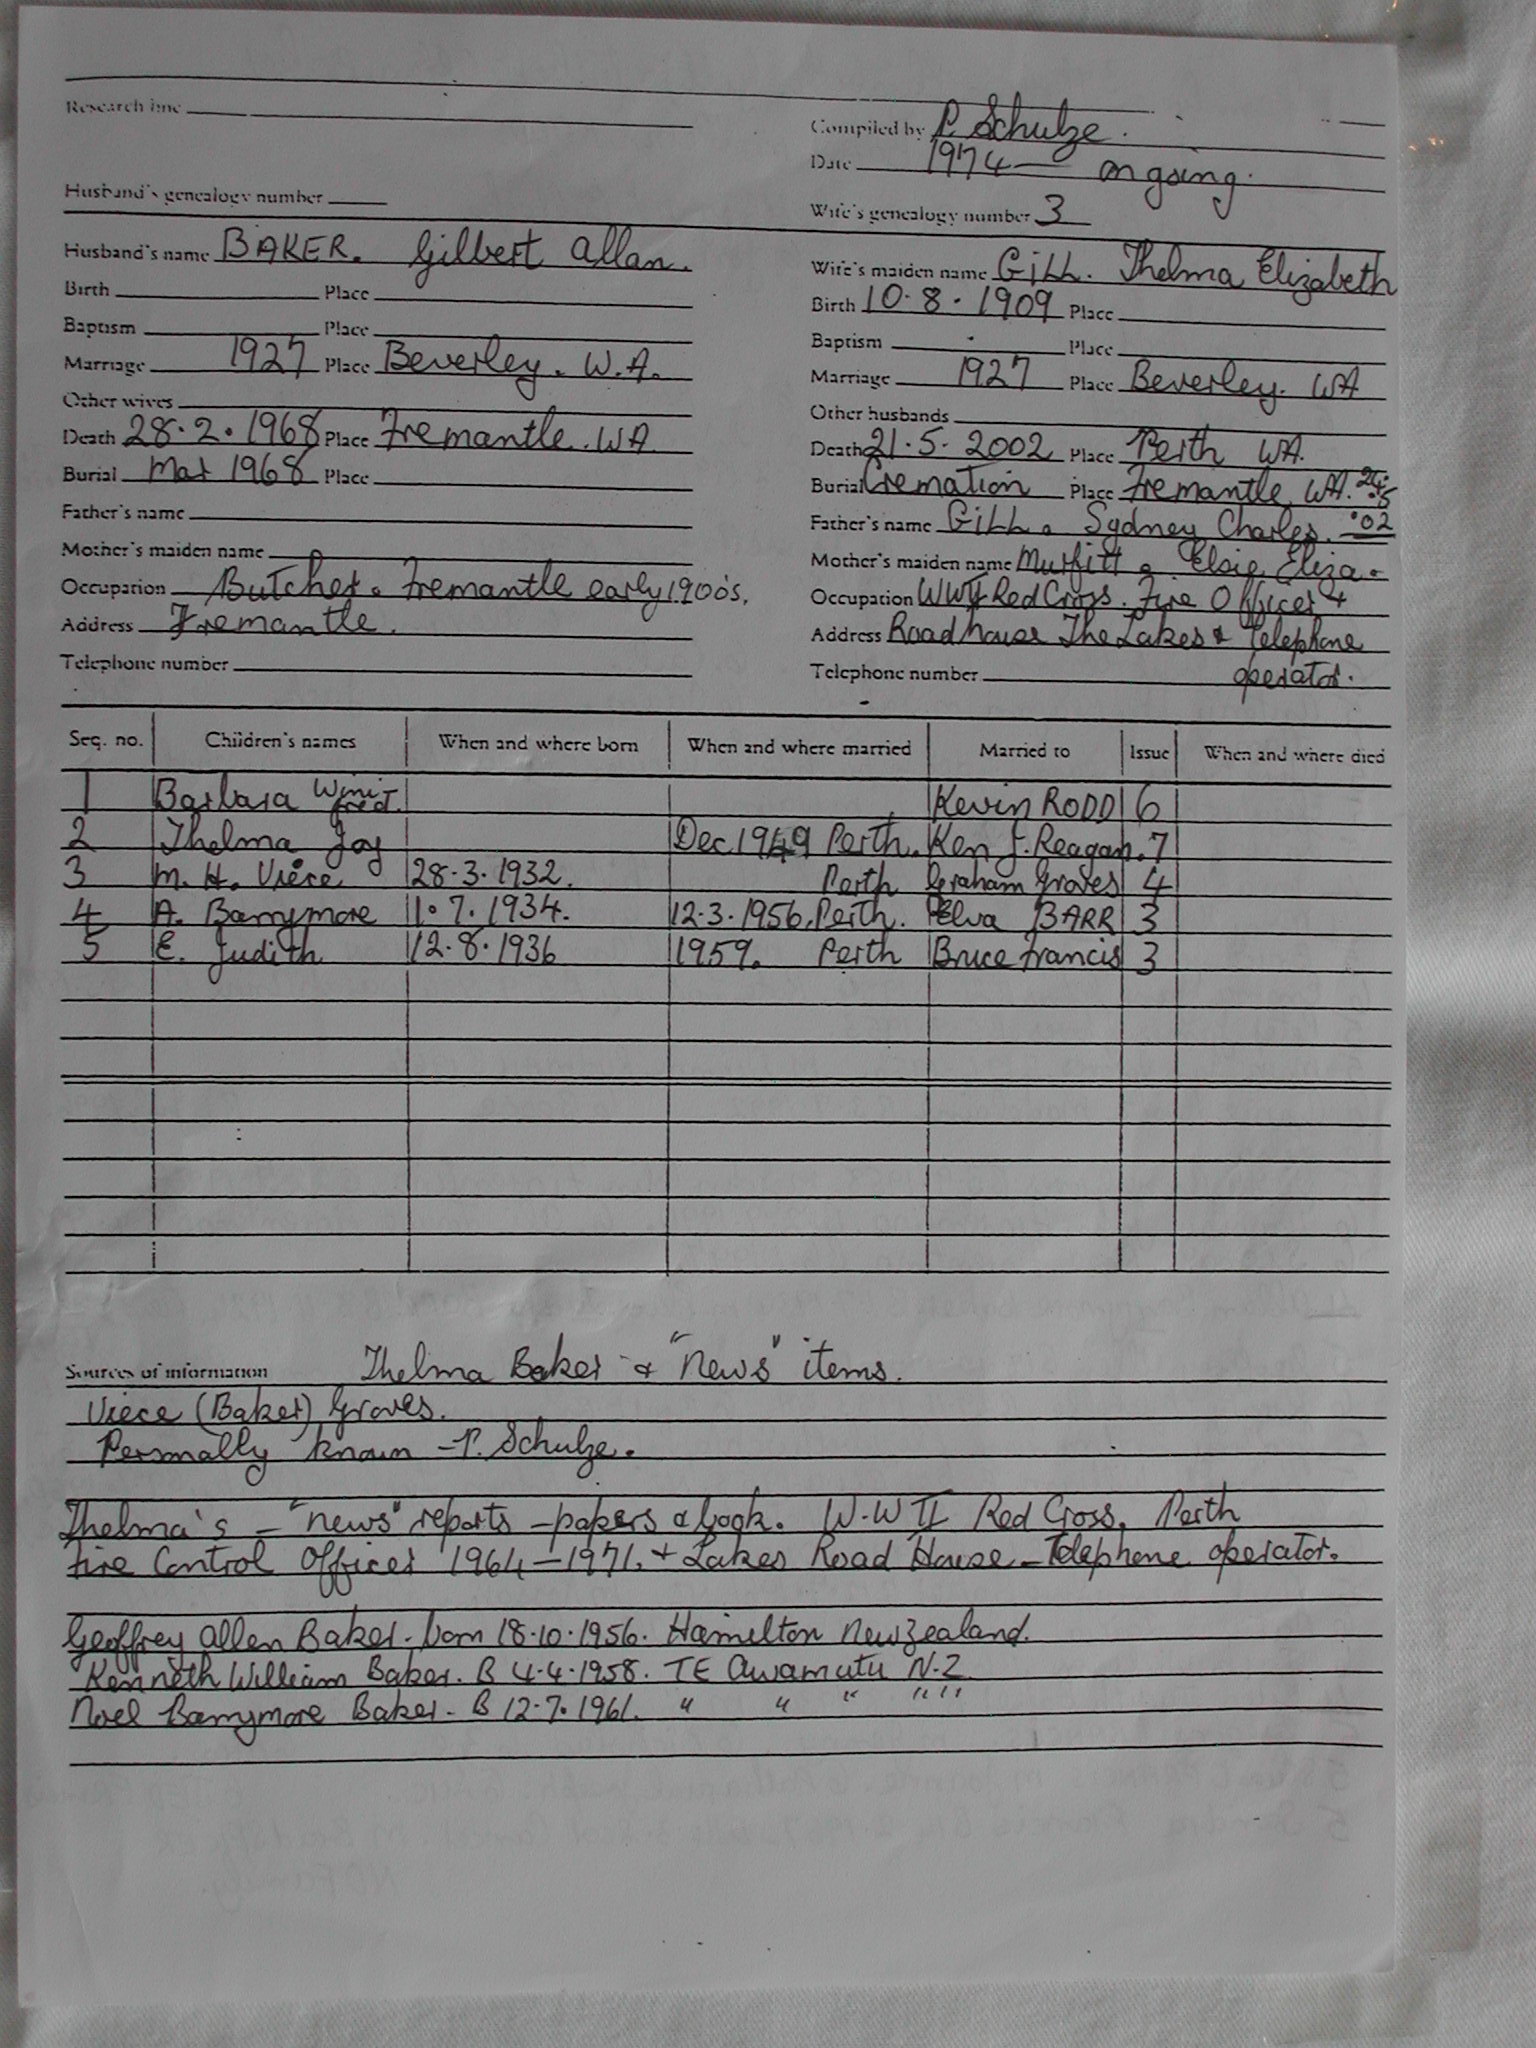 Research line
Compiled by P. Schulze.
Date 1974 — on going.
Husband's genealogy number
Wife's genealogy number 3
Husband's name BAKER. Gilbert Allan.
Wife's maiden name GILL. Thelma Elizabeth
Birth Place
Birth 10.8.1909 Place
Baptism Place
Baptism Place
Marriage 1927 Place Beverley. W.A.
Marriage 1927 Place Beverley. WA
Other wives
Other husbands
Death 28.2.1968 Place Fremantle. WA
Death 21.5.2002 Place Perth WA.
Burial Mar 1968 Place
Burial Cremation Place Fremantle WA. 24.5
Father's name
Father's name GILL. Sydney Charles. '02
Mother's maiden name
Mother's maiden name Murfitt. Elsie Eliza.
Occupation Butcher. Fremantle early 1900's.
Occupation WWII Red Cross. Fire Officer +
Address Fremantle.
Address Roadhouse The Lakes & Telephone
Telephone number
Telephone number operator.
Seq. no. Children's names When and where born When and where married Married to Issue When and where died
1 Barbara Winifred. Kevin RODD 6
2 Thelma Joy Dec 1949 Perth. Ken J. Reagan. 7
3 M. H. Viece 28.3.1932. Perth Graham Groves 4
4 A. Barrymore 1.7.1934. 12.3.1956. Perth. Elva BARR 3
5 E. Judith 12.8.1936 1959. Perth Bruce Francis 3
Sources of information Thelma Baker & "news" items.
Viece (Baker) Groves.
Personally known - P. Schulze.
Thelma's - "news" reports - papers & book. W.W II Red Cross. Perth
Fire Control Officer 1964 - 1971. + Lakes Road House - Telephone operator.
Geoffrey Allen Baker. born 18.10.1956. Hamilton New Zealand.
Kenneth William Baker. B 4.4.1958. TE Awamutu N.Z.
Noel Barrymore Baker. B 12.7.1961. " " " " "